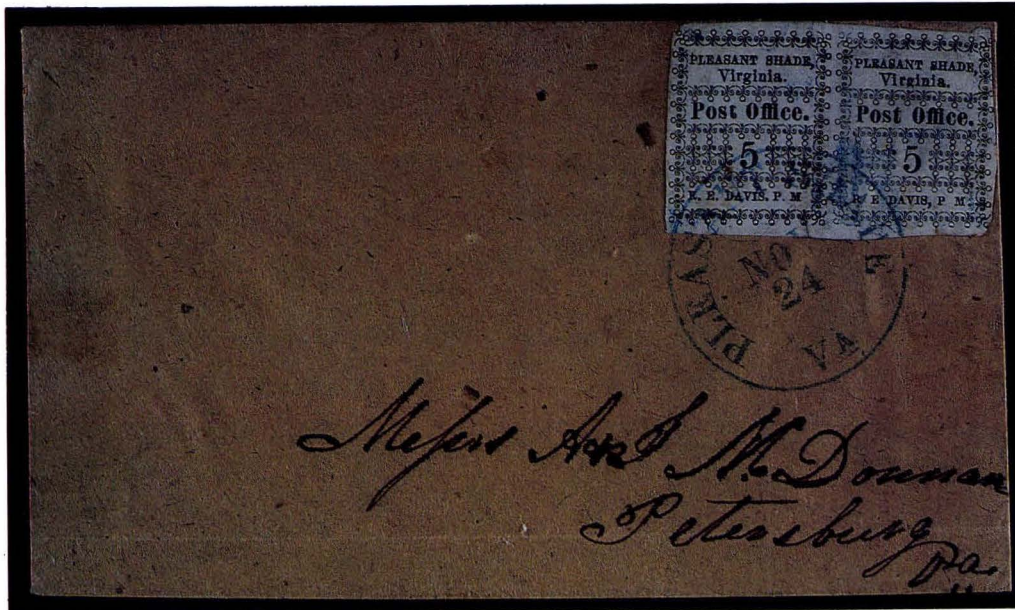 PLEASANT SHADE,
Virginia.
Post Office.
5
R. E. DAVIS, P. M
PLEASANT SHADE,
Virginia.
Post Office.
5
R. E DAVIS, P M
PLEAS E
VA
NO
24
Messrs A & J McDonnan
Petersburg
Va.